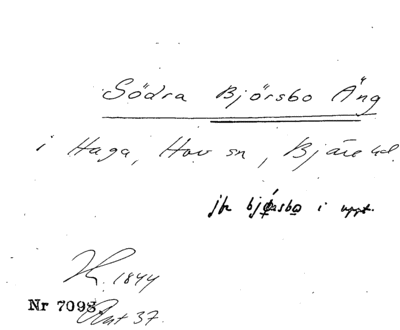 Södra Björsbo Äng
i Haga, Hov sn, Bjäre hd.
jfr bjørsbo i uppt.
K. 1844
Nr 7098.
Akt 37.